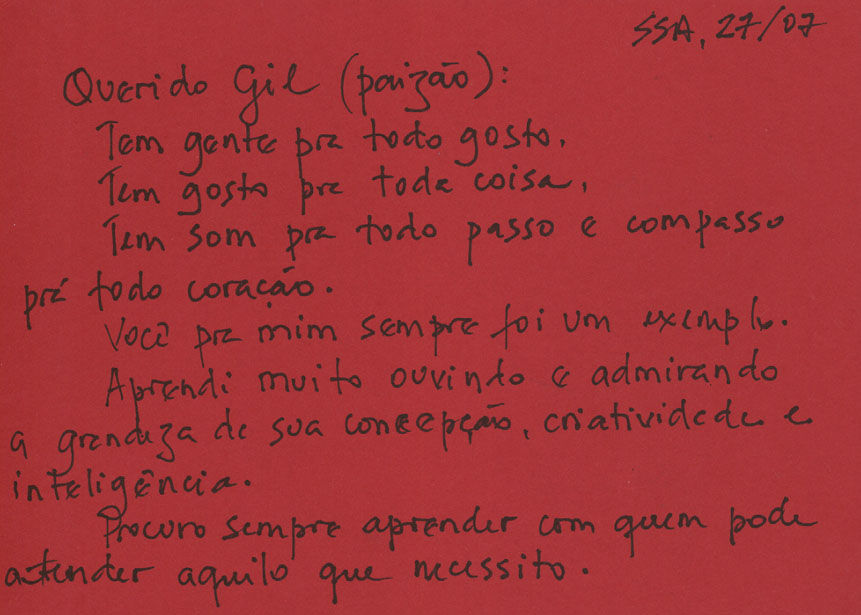 SSA, 27/07
Querido Gil (paizão):
Tem gente pra todo gosto,
Tem gosto pra toda coisa,
Tem som pra todo passo e compasso
prá todo coração.
Você pra mim sempre foi um exemplo.
Aprendi muito ouvindo e admirando
a grandeza de sua concepção, criatividade e
inteligência.
Procuro sempre aprender com quem pode
atender aquilo que necessito.